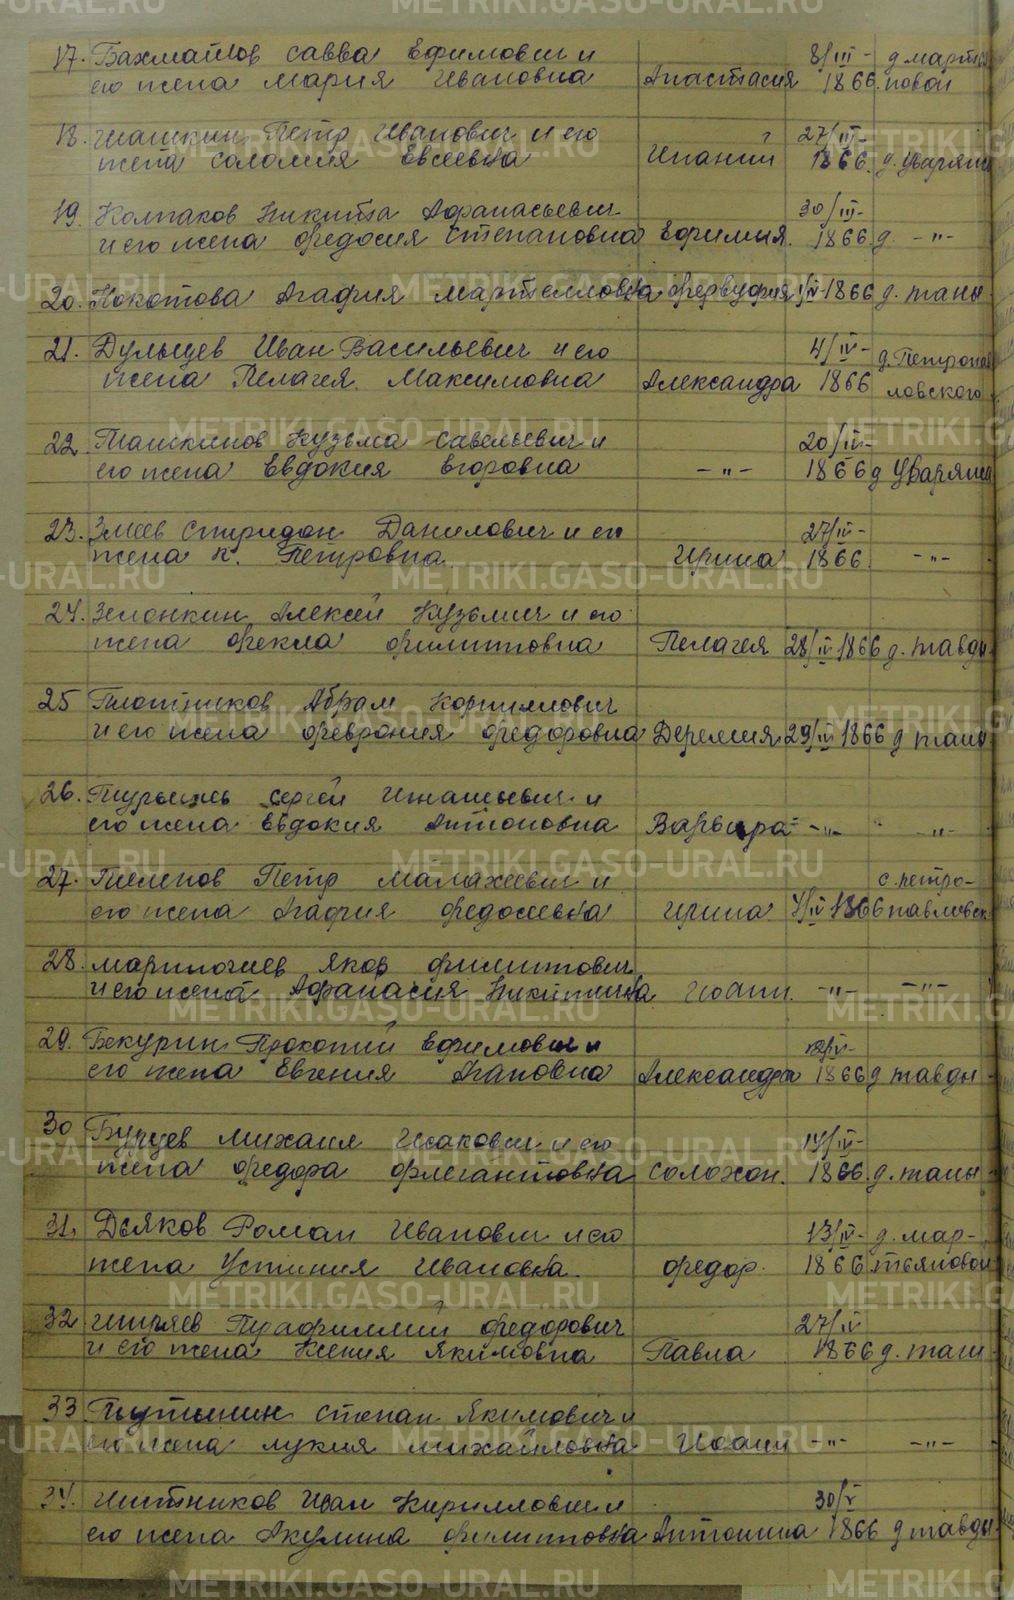 17. Бахматов Савва Ефимович и 8/III- д. март
его жена Мария Ивановна Анастасия 1866. новой
18. Шашкин Петр Иванович и его 27/III-
жена Саломия Евсеевна 1866. д. Уваряш
19. Колпаков Никита Афанасьевич 30/III-
и его жена Федосия Степановна Ефимия. 1866. д. -"-
20. Кокотова Агафия 1866 д. таны
21. Дульцев Иван Васильевич и его 4/IV- д. Петропав
жена Пелагея Максимовна Александра 1866 ловского
22. Ташкинов Кузьма Савельевич и 20/IV-
его жена Евдокия Егоровна -"- 1866 д Уваряш
23. Змеев Спиридон Данилович и его 27/IV-
жена К. Петровна Ирина 1866. -"-
24. Зеленкин Алексей Кузьмич и его
жена Фекла Филипповна Пелагея 28/IV 1866 д. тавды
25 Плотников Абрам Корнилович
и его жена Феврония Федоровна 29/IV 1866 д таны
26. Сергей Игнатьевич и
его жена Евдокия Антоновна Варвара -"- -"-
27. Пеленов Петр Малахеевич и с. петро-
его жена Агафия Федосеевна Ирина 1866 павловск
28. Яков Филиппович
и его жена Афанасия Никитична Иоанн. -"- -"-
29. Бекурин Прокопий Ефимович и
его жена Евгения Агаповна Александра 1866 д тавды
30 Бурцев Михаил Исакович и его 14/IV-
жена Федора Флегантовна Соломон. 1866. д. таны
31. Дьяков Роман Иванович и его 13/IV- д. мар-
жена Устиния Ивановна Федор. 1866. тьяновой
32 Федорович 27/IV
и его жена Ксения Якимовна Павла 1866 д. таны
33 Степан Якимович и
его жена Лукия Михайловна Иоанн -"- -"-
34. Иван Кириллович и 30/V
его жена Акулина Филипповна Антонина 1866 д тавды
METRIKI.GASO-URAL.RU